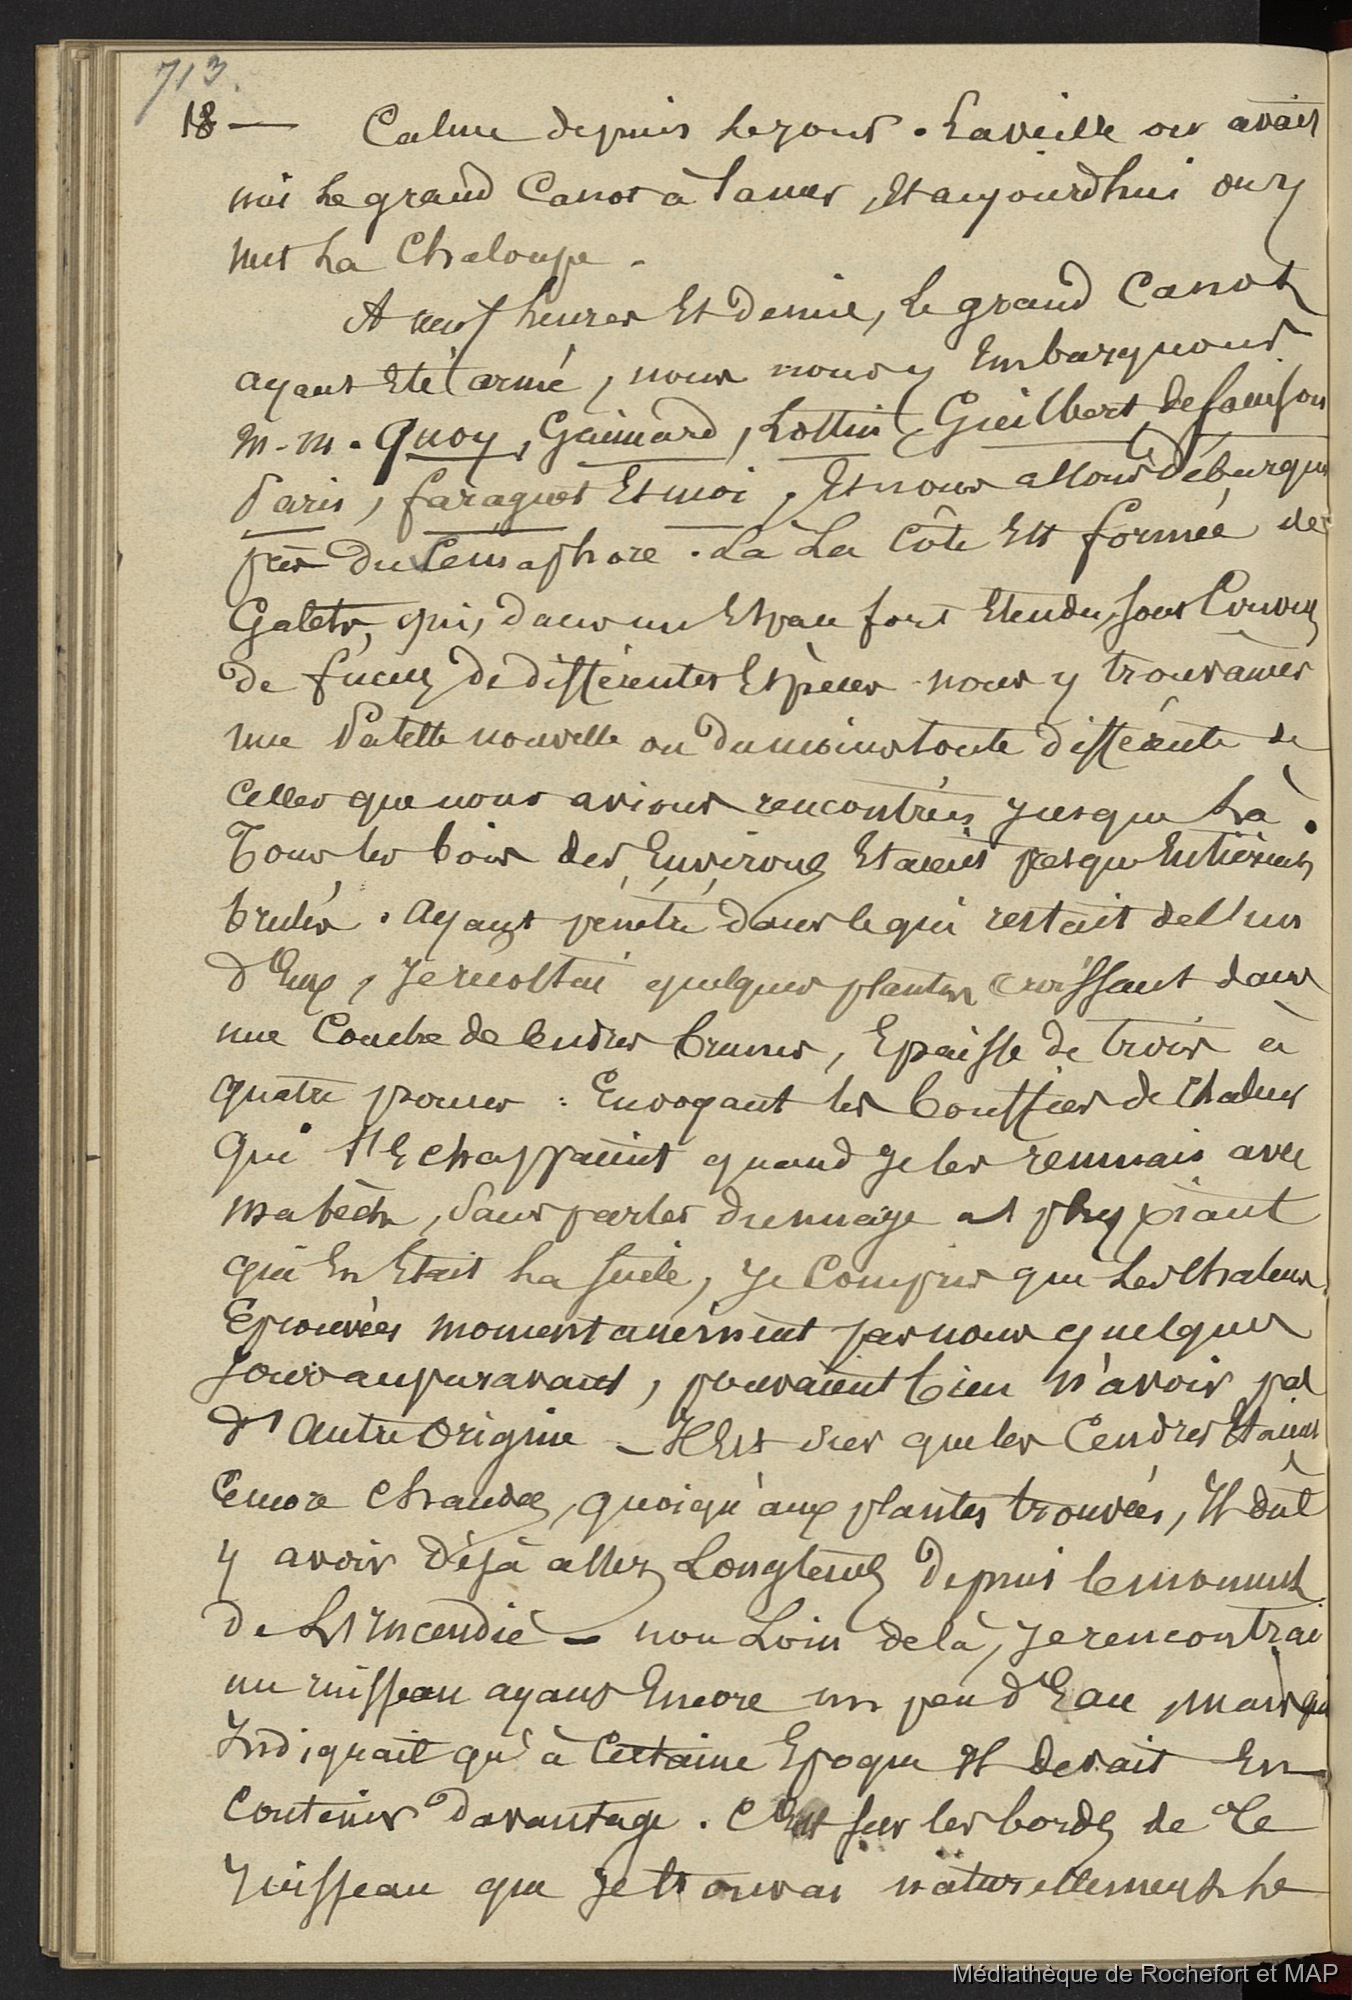 713.
18 — Calme depuis le jour. La veille on avait
mis le grand Canot à la mer, Et aujourdhui on y
mit La Chaloupe.
A neuf heures Et Demie, le grand Canot
ayant Eté armé, nous nous y Embarquons
M. M. Quoy, Gaimard, Lottin, Guilbert, de Sainson
Paris, faraguet Et moi, Et nous allons Débarquer
près Du Sémaphore. Là La Côte Est formée de
Galets, qui, dans un Espace fort Etendu, sont Couverts
De fucus De différentes Espèces nous y trouvâmes
une Patelle nouvelle ou Du moins toute différente de
Celles que nous avions rencontrées jusque Là.
Tous les bois des Environs Etaient presque Entièrement
brulés. Ayant pénétré dans ce qui restait de l'un
d'Eux, Je récoltai quelques plantes croissant dans
une Couche de Cendres brunes, Epaisse de trois à
quatre pouces : En voyant les bouffées de Chaleur
qui s'Echappaient quand Je les remuais avec
ma bèche, Sans parler du nuage asphyxiant
qui En Etait La suite, Je Compris que Les Chaleurs
Eprouvées momentanément par nous quelques
Jours auparavant, pouvaient bien n'avoir pas
d'autre Origine — Il Est sûr que les Cendres Etaient
Encore Chaudes, quoiqu'aux plantes trouvées, Il dût
y avoir Déjà assez Longtems Depuis le moment
De L'Incendie — non Loin de là, Je rencontrai
un ruisseau ayant Encore un peu d'Eau, mais qui
Indiquait qu'à Certaine Epoque Il devait En
Contenir Davantage. C'Est sur les bords de Ce
ruisseau que Je trouvai naturellement Le
Médiathèque de Rochefort et MAP